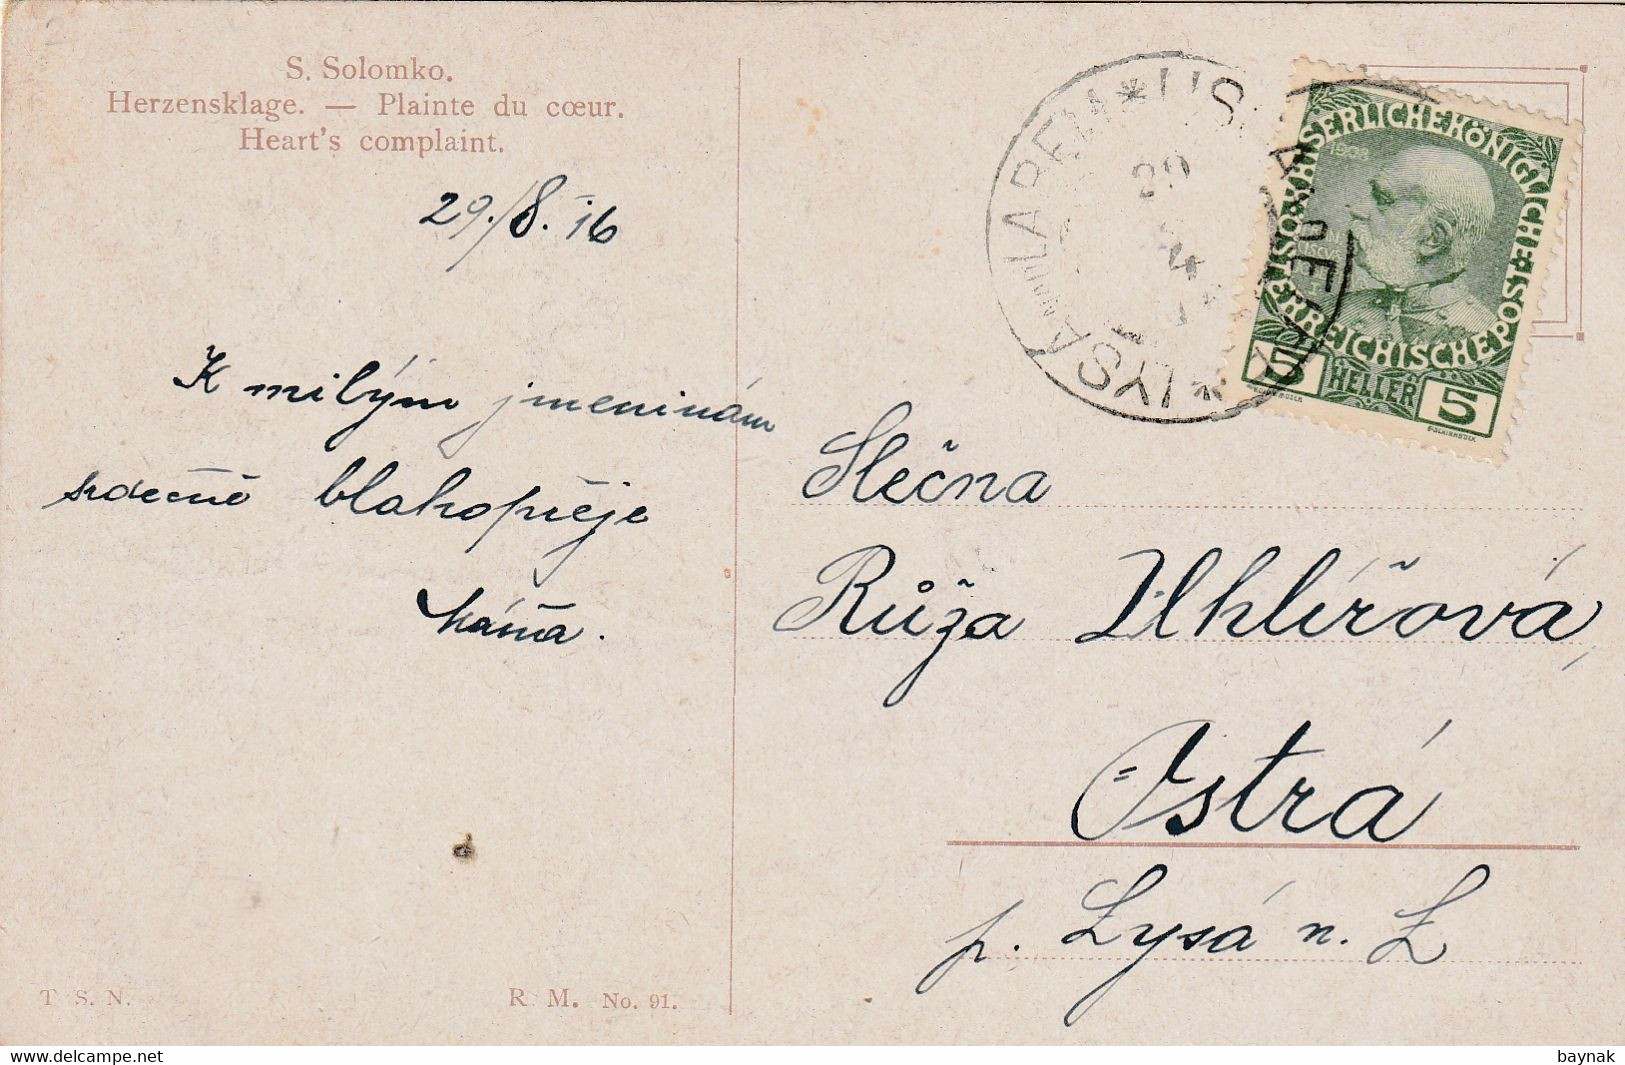 S. Solomko.
Herzensklage. — Plainte du cœur.
Heart's complaint.
29./8. 16
K milým jmeninám
srdečně blahopřeje
Máňa.
T. S. N.
R. M. No. 91.
ÖSTERREICHISCHE POST
KAISERLICHE KÖNIGLICHE
1908
5 HELLER 5
LYSÁ
LABEM
29
Slečna
Růža Uhlířová,
Ostrá
p. Lysá n. L
baynak
delcampe.net